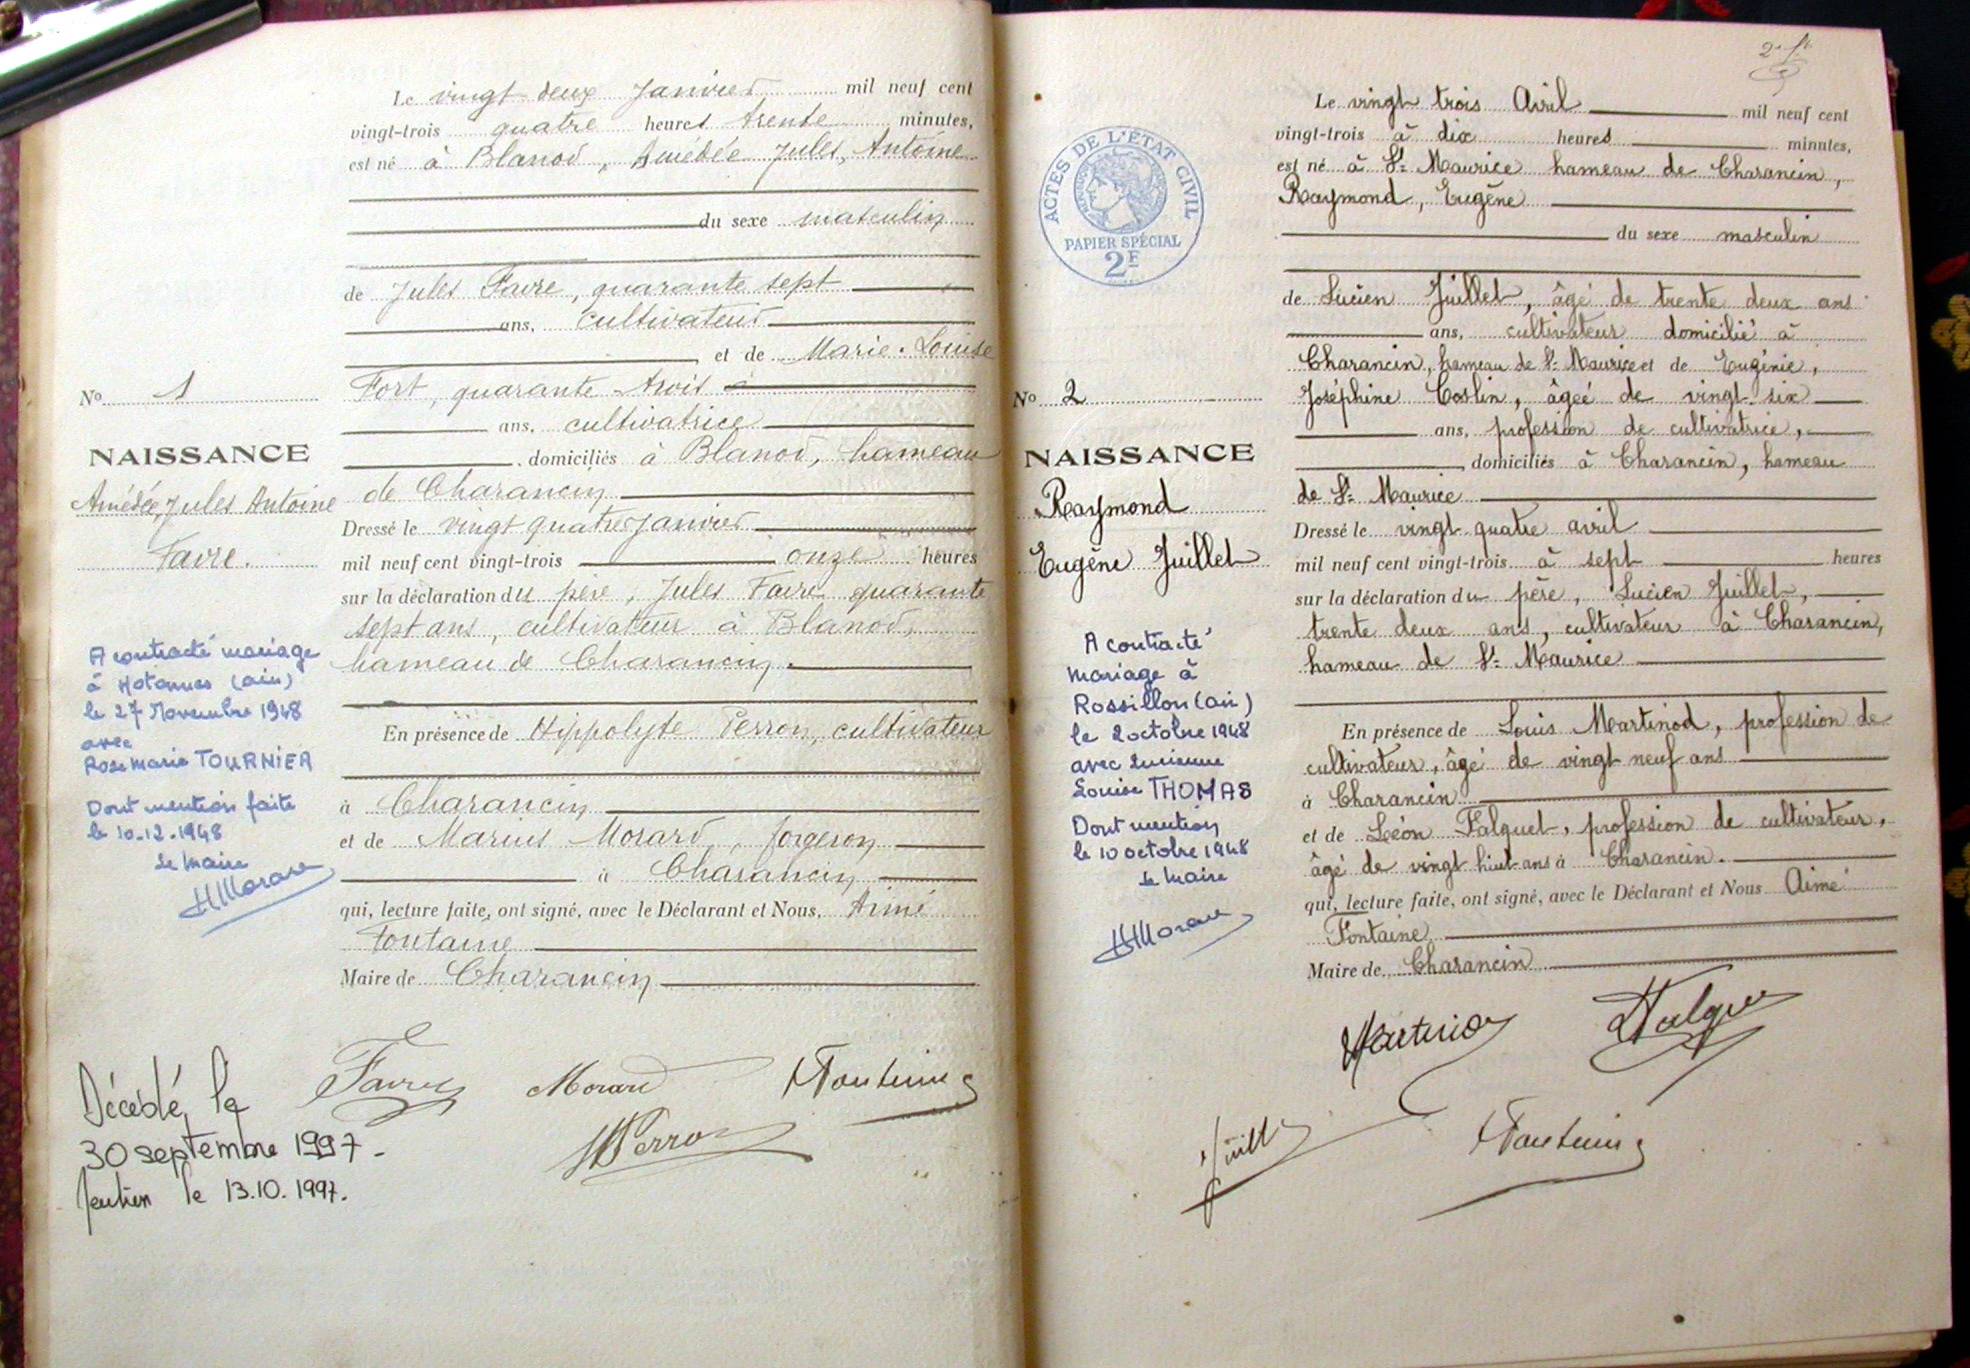 Le vingt deux Janvier mil neuf cent
vingt-trois quatre heures trente minutes,
est né à Blanod, Amédée Jules, Antoine
du sexe masculin
de Jules Favre, quarante sept
ans, cultivateur
et de Marie-Louise
Fort, quarante trois
ans, cultivatrice
domiciliés à Blanod, hameau
de Charancin
Dressé le vingt quatre janvier
mil neuf cent vingt-trois onze heures
sur la déclaration du père, Jules Favre quarante
sept ans, cultivateur à Blanod,
hameau de Charancin.
En présence de Hippolyte Perron, cultivateur
à Charancin
et de Marius Morard, forgeron
à Charancin
qui, lecture faite, ont signé, avec le Déclarant et Nous, Aimé
Fontaine
Maire de Charancin
Favre Morard Fontaine
HPerron
No 1
NAISSANCE
Amédée, Jules Antoine
Favre.
A contracté mariage
à Hotonnes (ain)
le 27 Novembre 1948
avec
Rose Marie TOURNIER
Dont mention faite
le 10-12-1948
Le Maire
HMorard
Décédé, le
30 septembre 1997.
le 13.10.1997.
2
ACTES DE L'ÉTAT CIVIL
PAPIER SPÉCIAL
2F
No 2
NAISSANCE
Raymond
Eugène Juillet
A contracté
mariage à
Rossillon (ain)
le 2 octobre 1948
avec Lucienne
Louise THOMAS
Dont mention
le 10 octobre 1948
Le Maire
HMorard
Le vingt trois Avril mil neuf cent
vingt-trois à dix heures minutes,
est né à St Maurice hameau de Charancin,
Raymond, Eugène
du sexe masculin
de Lucien Juillet, âgé de trente deux ans
ans, cultivateur domicilié à
Charancin, hameau de St Maurice et de Eugénie,
Joséphine Coslin, âgée de vingt six
ans, profession de cultivatrice,
domiciliés à Charancin, hameau
de St Maurice
Dressé le vingt quatre avril
mil neuf cent vingt-trois à sept heures
sur la déclaration du père, Lucien Juillet,
trente deux ans, cultivateur à Charancin,
hameau de St Maurice
En présence de Louis Martinod, profession de
cultivateur, âgé de vingt neuf ans
à Charancin
et de Léon Falquet, profession de cultivateur,
âgé de vingt huit ans à Charancin.
qui, lecture faite, ont signé, avec le Déclarant et Nous Aimé
Fontaine
Maire de Charancin
Martinod Falquet
Juillet Fontaine